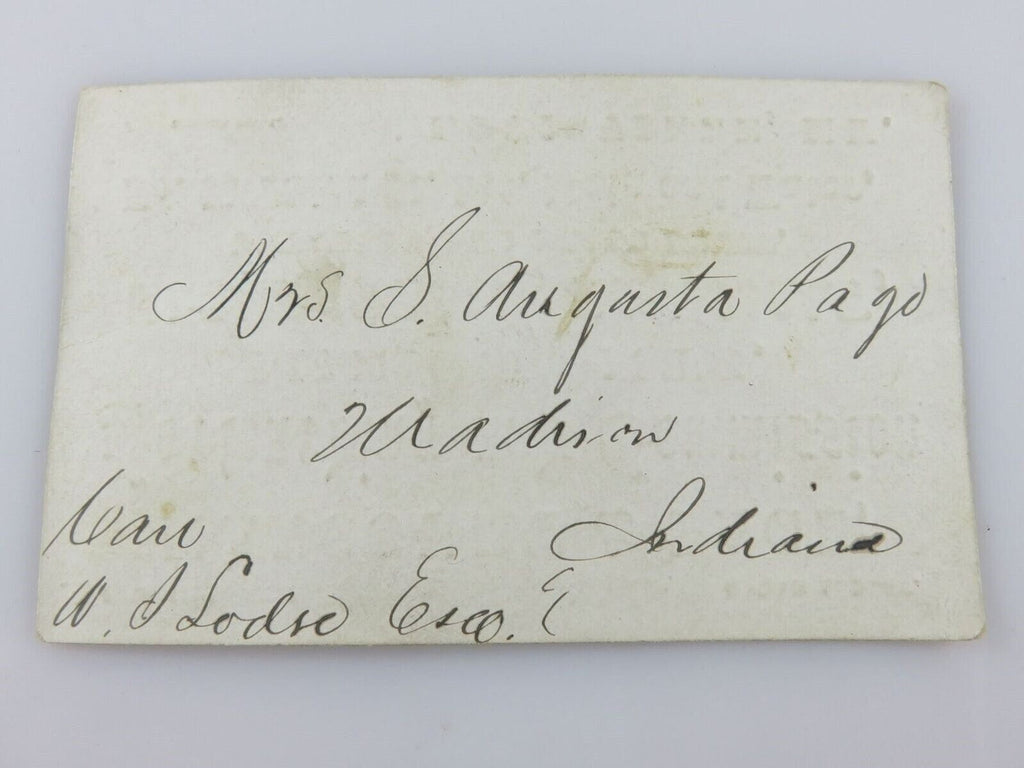 Mrs. S. Augusta Page
Madison
Indiana
Care
W. Esq.